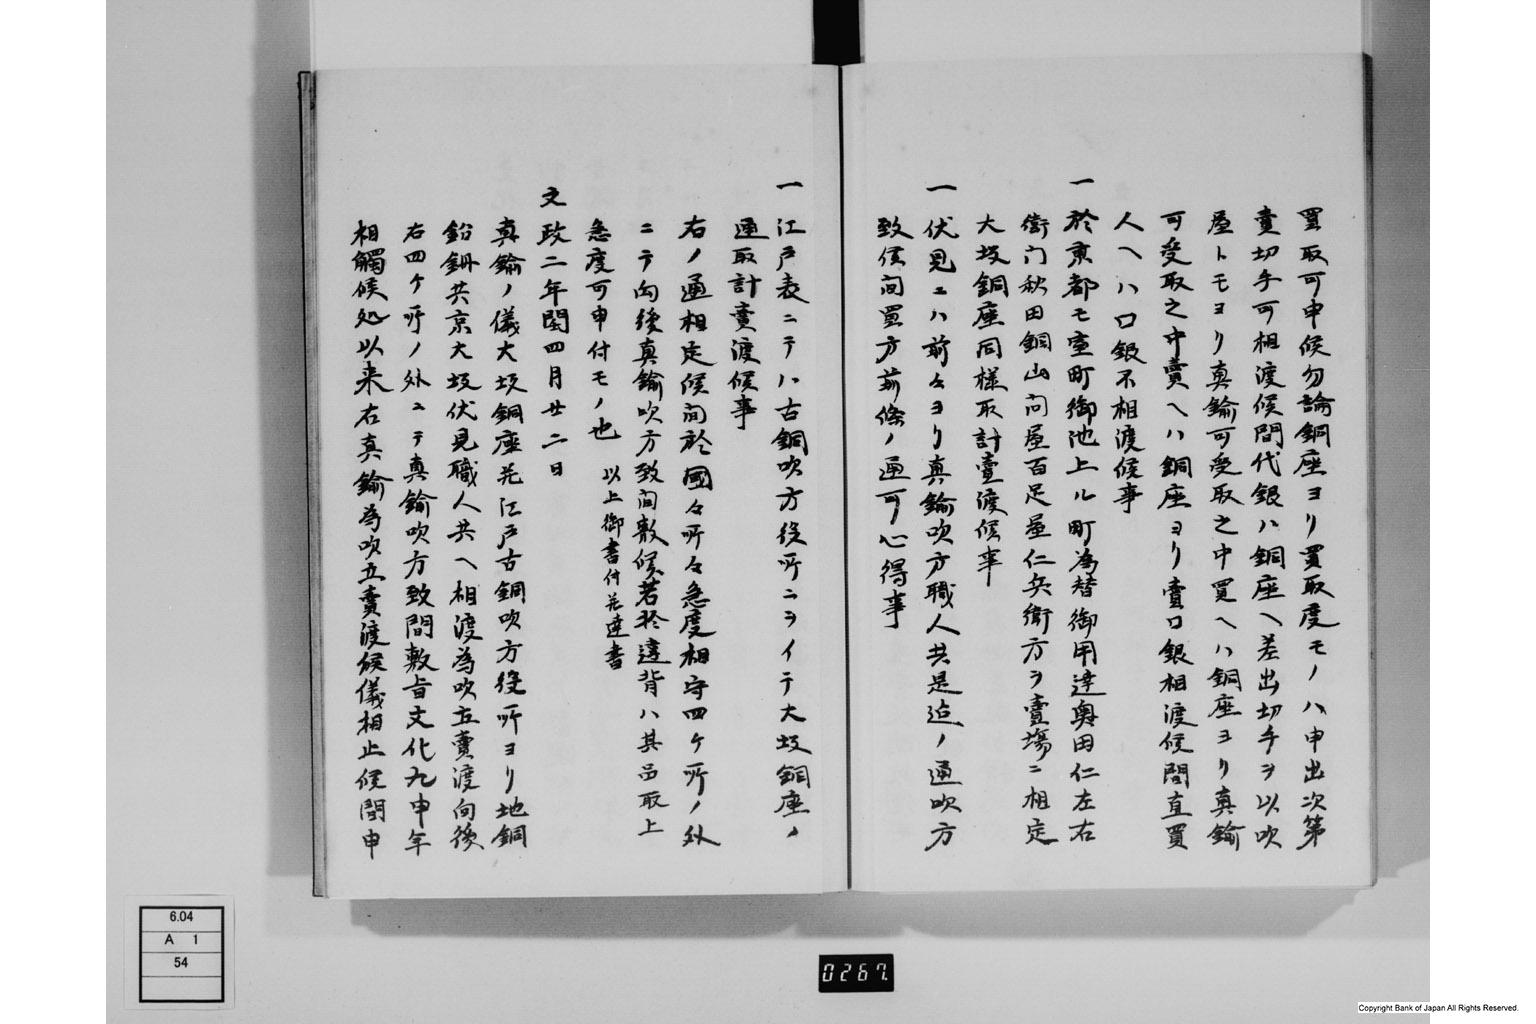 買取可申候勿論銅座ヨリ買取度モノハ申出次第
賣切手可相渡候間代銀ハ銅座ヘ差出切手ヲ以吹
屋トモヨリ真鍮可受取之中買ヘハ銅座ヨリ真鍮
可受取之中賣ヘハ銅座ヨリ賣口銀相渡候間直買
人ヘハ口銀不相渡候事
一 於京都モ室町御池上ル町為替御用達奥田仁左右
衛门秋田銅山问屋百足屋仁兵衛方ヲ賣場ニ相定
大坂銅座同様取計賣渡候事
一 伏見ニハ前々ヨリ真鍮吹方職人共是迄ノ通吹方
致候间買方前條ノ通可心得事
一 江戸表ニテハ古銅吹方役所ニヲイテ大坂銅座ノ
通取計賣渡候事
右ノ通相定候间於國々所々急度相守四ケ所ノ外
ニテ向後真鍮吹方致间敷候若於違背ハ其品取上
急度可申付モノ也 以上御書付并達書
文政二年閏四月廿二日
真鍮ノ儀大坂銅座并江戸古銅吹方役所ヨリ地銅
鉛錫共京大坂伏見職人共ヘ相渡為吹立賣渡向後
右四ケ所ノ外ニテ真鍮吹方致間敷旨文化九申年
相觸候処以来右真鍮為吹立賣渡候儀相止候間申
6.04
A 1
54
0267.
Copyright Bank of Japan All Rights Reserved.